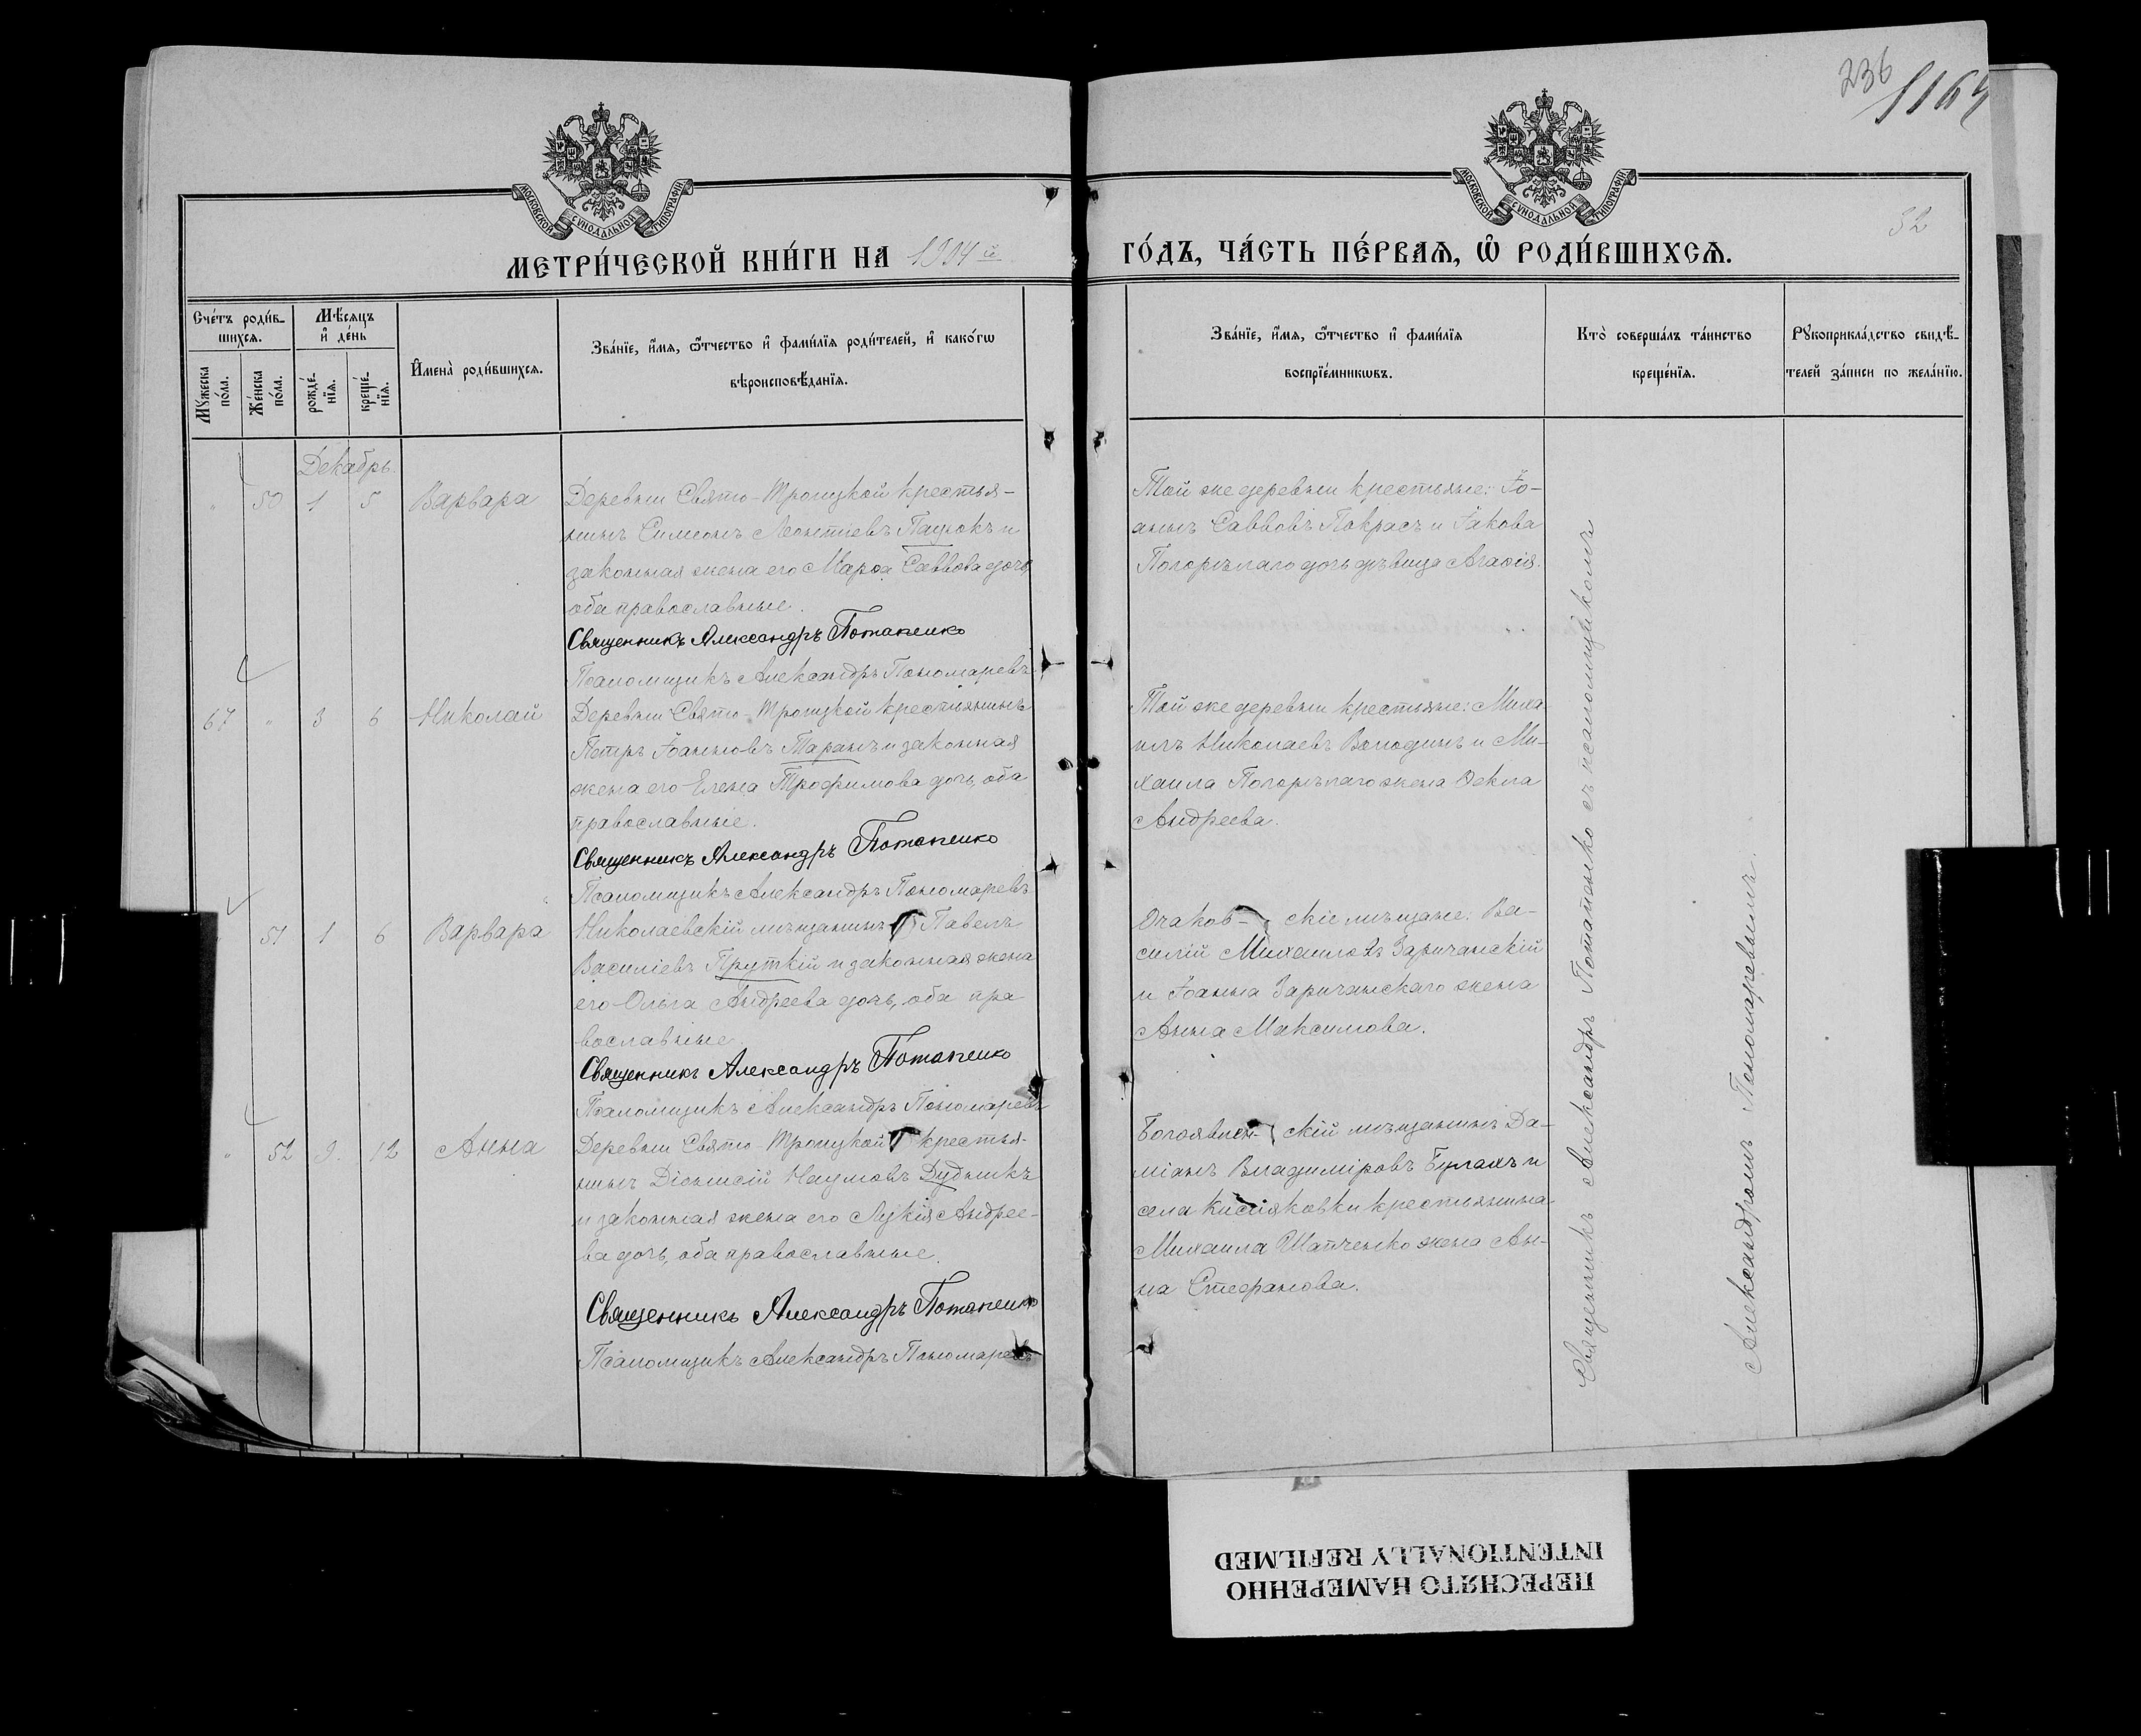 236
1164
52
МОСКОВСКОЙ СѴНОДАЛЬНОЙ ТИПОГРАФІИ
МОСКОВСКОЙ СѴНОДАЛЬНОЙ ТИПОГРАФІИ
МЕТРИ́ЧЕСКОЙ КНИ́ГИ НА 1904 й ГО́ДЪ, ЧА́СТЬ ПЕ́РВАѦ, Ѽ РОДИ́ВШИХСѦ.
Сче́тъ роди́в-
шихсѧ.
Мꙋ́жеска
по́ла.
Же́нска
по́ла.
Мѣ́сѧцъ
и҆ де́нь
рожде́-
нїѧ.
креще́-
нїѧ.
И҆мена̀ роди́вшихсѧ.
Зва́нїе, и҆́мѧ, ѻ҆́тчество и҆ фами́лїѧ роди́телей, и҆ како́гѡ
вѣроисповѣ́данїѧ.
Зва́нїе, и҆́мѧ, ѻ҆́тчество и҆ фами́лїѧ
воспрїе́мникѡвъ.
Кто̀ соверша́лъ та́инство
креще́нїѧ.
Рꙋкоприкла́дство свидѣ́-
телей за́писи по жела́нїю.
Декабрь.
" 50 1 5 Варвара
Деревни Свято-Троицкой крестья-
нинъ Симеонъ Леонтіевъ Пацюкъ и
законная жена его Марѳа Саввова дочь,
оба православные.
Священникъ Александръ Потапенко
Псаломщикъ Александръ Пономаревъ
Той же деревни крестьяне: Іо-
аннъ Саввовъ Покрасъ и Іакова
Погорѣлаго дочь дѣвица Агаѳія.
67 " 3 6 Николай
Деревни Свято-Троицкой крестьянинъ
Петръ Іоанновъ Таранъ и законная
жена его Елена Трофимова дочь, оба
православные.
Священникъ Александръ Потапенко
Псаломщикъ Александръ Пономаревъ
Той же деревни крестьяне: Миха
илъ Николаевъ Володинъ и Ми-
хаила Погорѣлаго жена Ѳекла
Андреева.
" 51 1 6 Варвара
Николаевскій мѣщанинъ Павелъ
Василіевъ Пруткій и законная жена
его Ольга Андреева дочь, оба пра
вославные.
Священникъ Александръ Потапенко
Псаломщикъ Александръ Пономаревъ
Очаков- скіе мѣщане: Ва-
силій Михаиловъ Заричанскій
и Іоанна Заричанскаго жена
Анна Максимова.
" 52 9. 12 Анна
Деревни Свято Троицкой крестья-
нинъ Діонисій Наумовъ Дудникъ
и законная жена его Лукія Андрее-
ва дочь, оба православные.
Священникъ Александръ Потапенко
Псаломщикъ Александръ Пономаревъ
Богоявлен- скій мѣщанинъ Да-
міанъ Владиміровъ Булахъ и
села Кисляковки крестьянина
Михаила Шапченко жена Ан-
на Стефанова.
Священникъ Александръ Потапенко съ псаломщикомъ
Александромъ Пономаревымъ.
ПЕРЕСНЯТО НАМЕРЕННО
INTENTIONALLY REFILMED